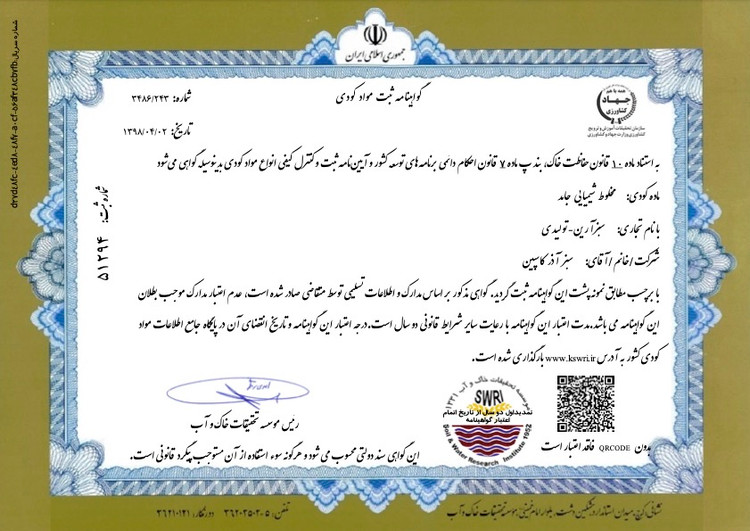 جمهوری اسلامی ایران
گواهینامه ثبت مواد کودی
شماره: ۳۴۸۶/۲۴۳
تاریخ: ۱۳۹۸/۰۴/۰۲
همه با هم
جهاد
کشاورزی
سازمان تحقیقات آموزش و ترویج
کشاورزی وزارت جهاد و کشاورزی
به استناد ماده ۱۰ قانون حفاظت خاک، بند پ ماده ۷ قانون احکام دائمی برنامه های توسعه کشور و آیین نامه ثبت و کنترل کیفی انواع مواد کودی بدینوسیله گواهی می شود
ماده کودی: مخلوط شیمیایی جامد
با نام تجاری: سبز آرین-تولیدی
شرکت/خانم/آقای: سبز آذر کاسپین
با برچسب مطابق نمونه پشت این گواهینامه ثبت گردید. گواهی مذکور بر اساس مدارک و اطلاعات تسلیمی توسط متقاضی صادر شده است، عدم اعتبار مدارک موجب بطلان
این گواهینامه می باشد. مدت اعتبار این گواهینامه با رعایت سایر شرایط قانونی دو سال است. درجه اعتبار این گواهینامه و تاریخ انقضای آن در پایگاه جامع اطلاعات مواد
کودی کشور به آدرس www.kswri.ir بارگذاری شده است.
شماره ثبت: ۵۱۲۹۴
شماره سریال:
رئیس موسسه تحقیقات خاک و آب
موسسه تحقیقات خاک و آب ۱۳۳۱
SWRI
تمدید اول دو سال از تاریخ اتمام
اعتبار گواهینامه
Soil & Water Research Institute 1952
بدون QRCODE فاقد اعتبار است
این گواهی سند دولتی محسوب می شود و هرگونه سوء استفاده از آن مستوجب پیگرد قانونی است.
نشانی: کرج، میدان استاندارد، مشکین دشت، بلوار امام خمینی، موسسه تحقیقات خاک و آب
تلفن: ۵-۳۶۲۰۳۵۰۲ دورنگار: ۳۶۲۱۰۱۲۱